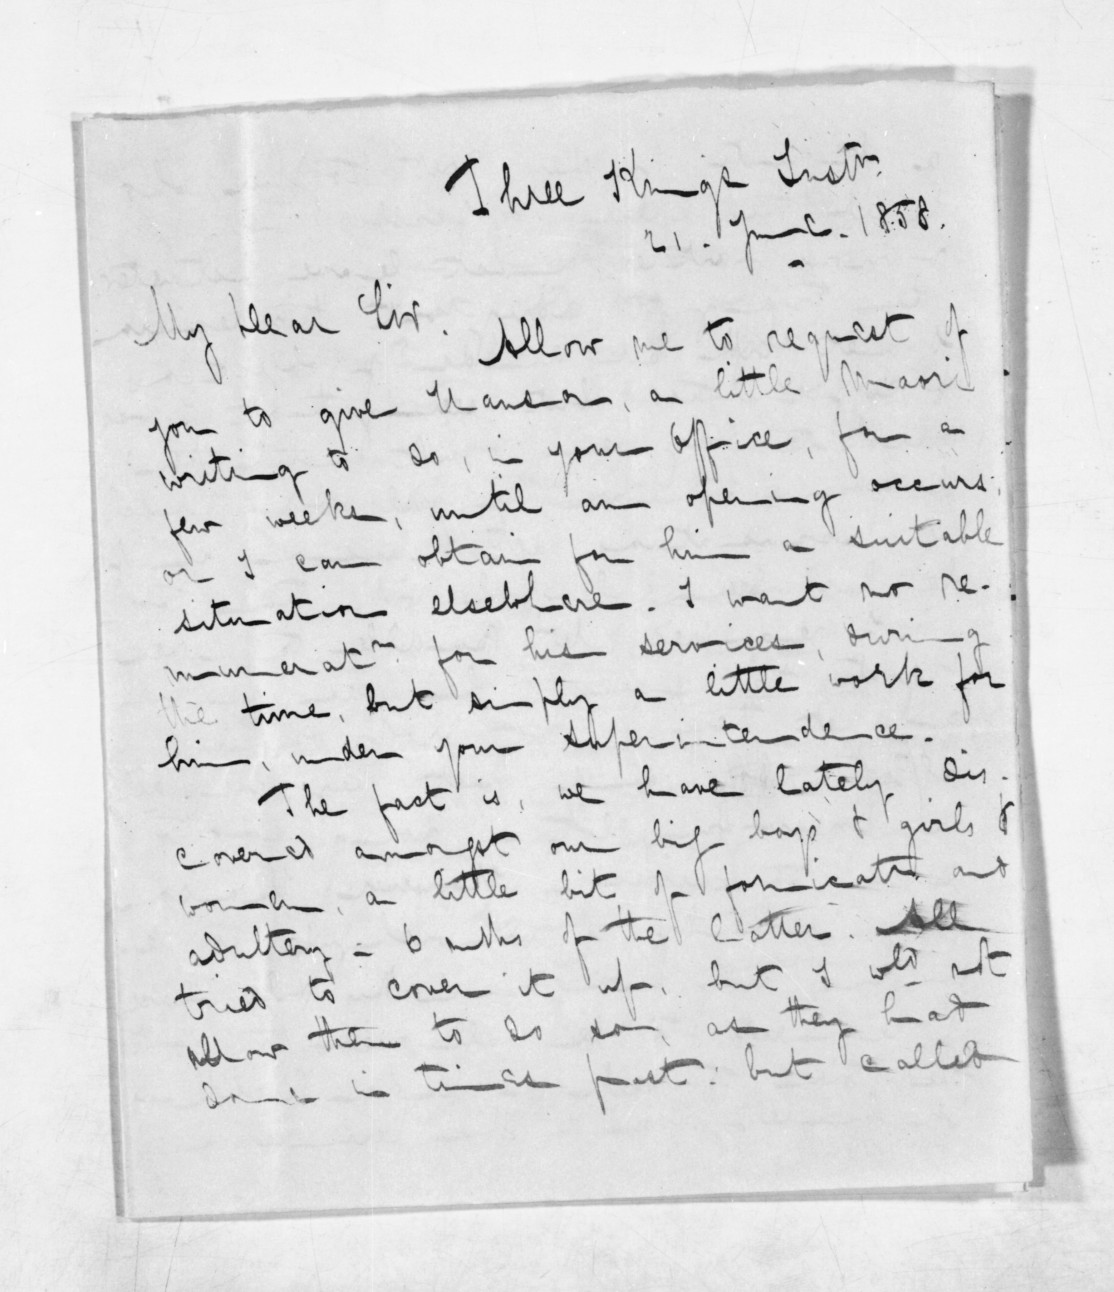 Three Kings Instn.
21. June. 1858.
My Dear Sir.
Allow me to request of
you to give Nanson, a little Maori
writing to do, in your Office, for a
few weeks, until an opening occurs,
or I can obtain for him a suitable
situation elsewhere. I want no re-
muneratn. for his services, during
the time, but simply a little work for
him, under your superintendence.
The fact is, we have lately dis-
covered amongst our big boys & girls &
women, a little bit of fornicatn. and
adultery - 6 mths of the latter. All
tried to cover it up, but I wld not
allow them to do so, as they had
done in times past: but called